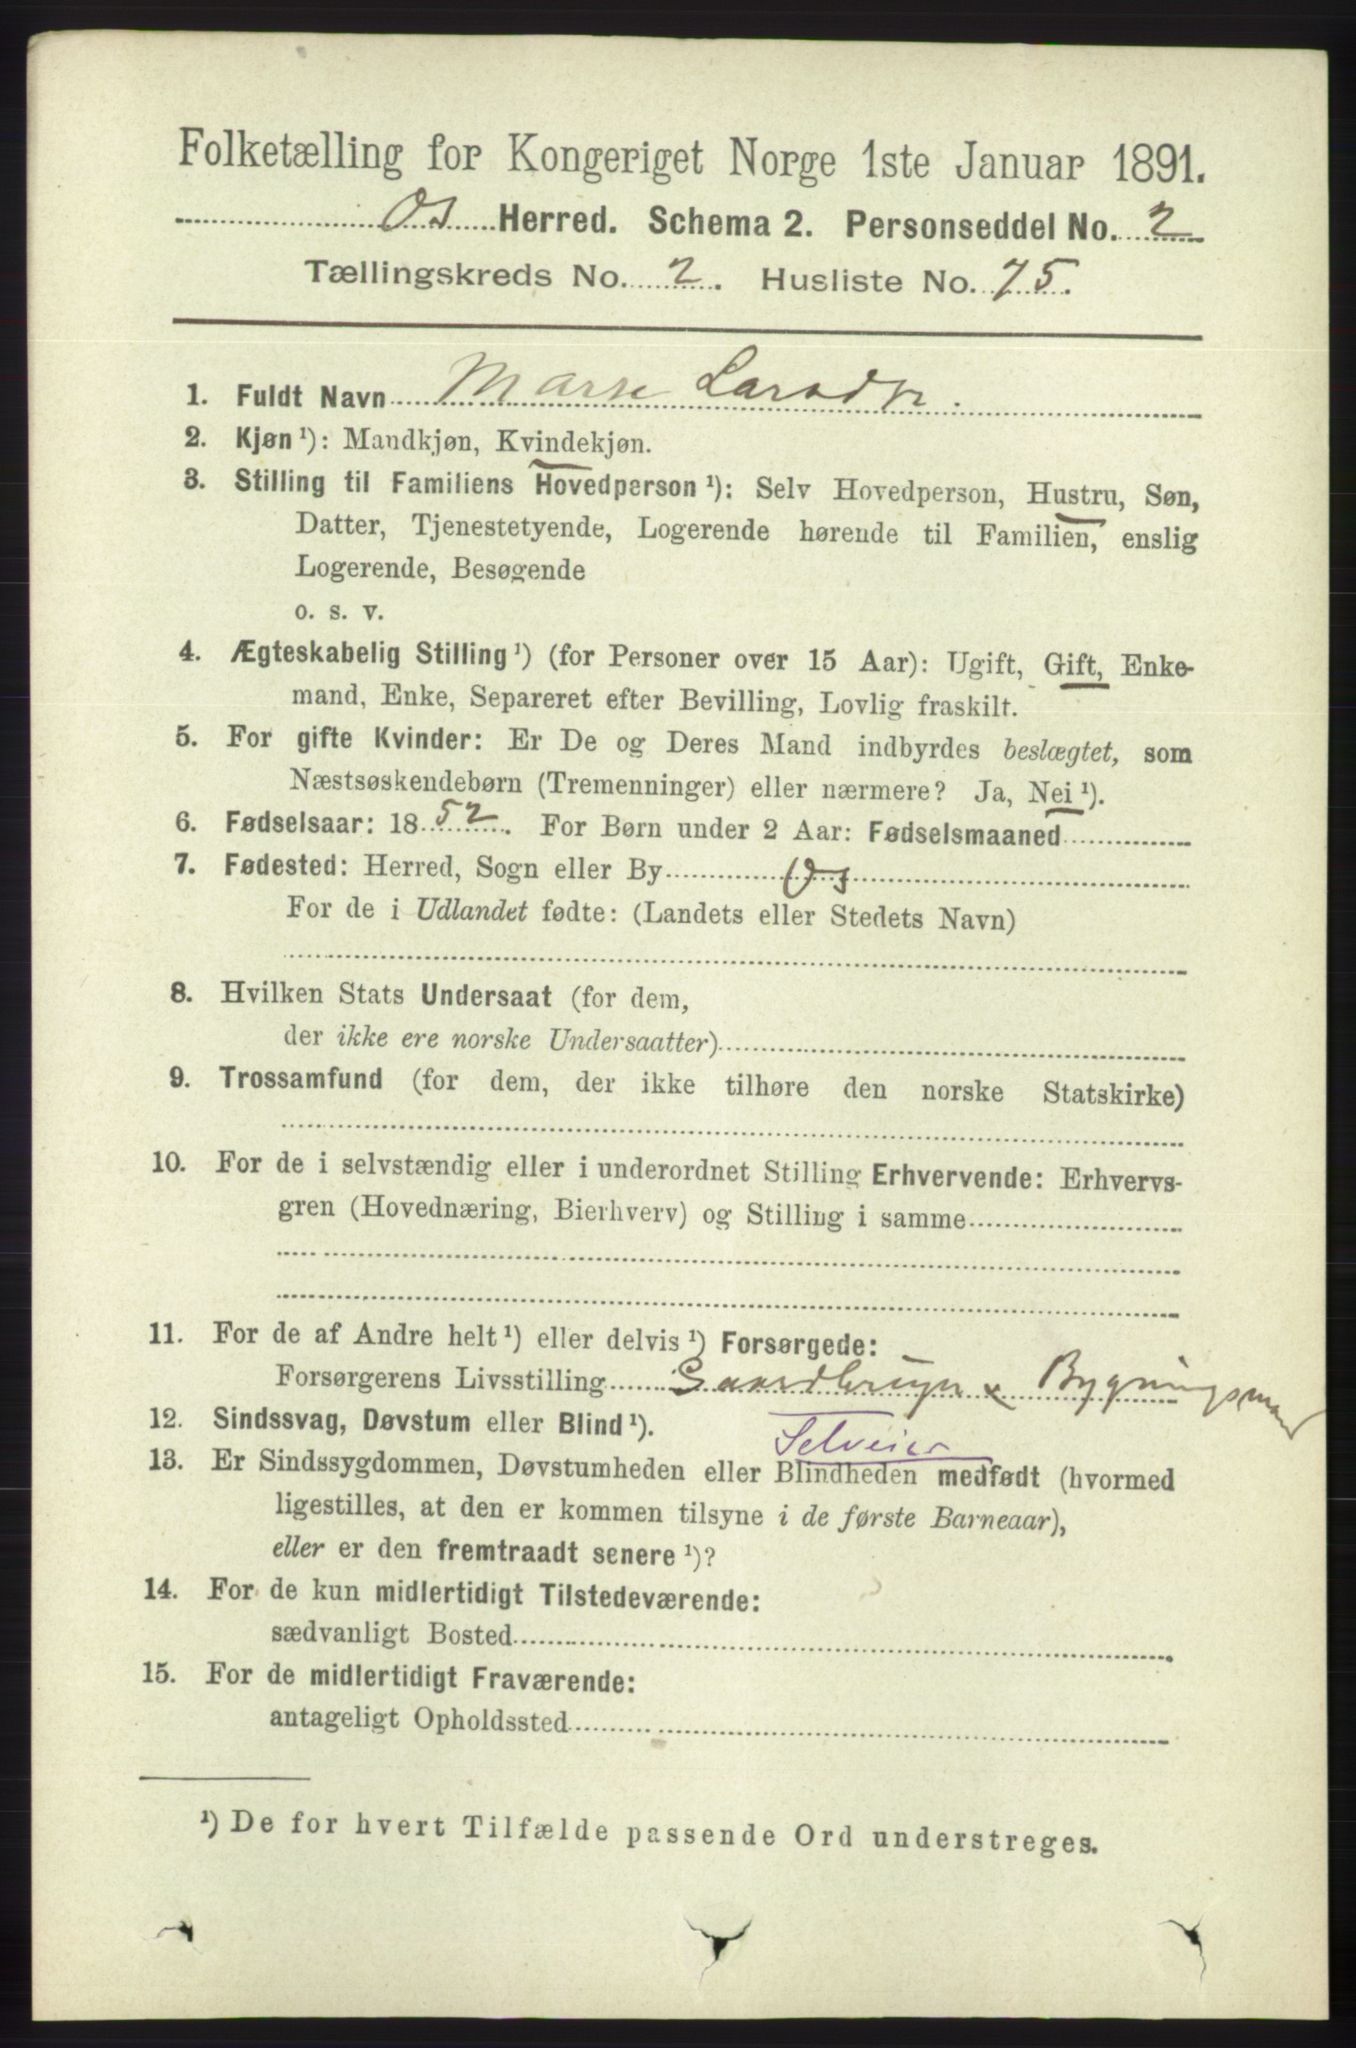 Folketælling for Kongeriget Norge 1ste Januar 1891.
Os Herred. Schema 2. Personseddel No. 2
Tællingskreds No. 2. Husliste No. 75.
1. Fuldt Navn Larsdtr.
2. Kjøn ¹): Mandkjøn, Kvindekjøn.
3. Stilling til Familiens Hovedperson ¹): Selv Hovedperson, Hustru, Søn,
Datter, Tjenestetyende, Logerende hørende til Familien, enslig
Logerende, Besøgende
o. s. v.
4. Ægteskabelig Stilling ¹) (for Personer over 15 Aar): Ugift, Gift, Enke-
mand, Enke, Separeret efter Bevilling, Lovlig fraskilt.
5. For gifte Kvinder: Er De og Deres Mand indbyrdes beslægtet, som
Næstsøskendebørn (Tremenninger) eller nærmere? Ja, Nei ¹).
6. Fødselsaar: 1852. For Børn under 2 Aar: Fødselsmaaned
7. Fødested: Herred, Sogn eller By Os
For de i Udlandet fødte: (Landets eller Stedets Navn)
8. Hvilken Stats Undersaat (for dem,
der ikke ere norske Undersaatter)
9. Trossamfund (for dem, der ikke tilhøre den norske Statskirke)
10. For de i selvstændig eller i underordnet Stilling Erhvervende: Erhvervs-
gren (Hovednæring, Bierhverv) og Stilling i samme
11. For de af Andre helt ¹) eller delvis ¹) Forsørgede:
Forsørgerens Livsstilling Gaardbruger x Bygningsmand
12. Sindssvag, Døvstum eller Blind ¹). Selveier
13. Er Sindssygdommen, Døvstumheden eller Blindheden medfødt (hvormed
ligestilles, at den er kommen tilsyne i de første Barneaar),
eller er den fremtraadt senere ¹)?
14. For de kun midlertidigt Tilstedeværende:
sædvanligt Bosted
15. For de midlertidigt Fraværende:
antageligt Opholdssted
¹) De for hvert Tilfælde passende Ord understreges.